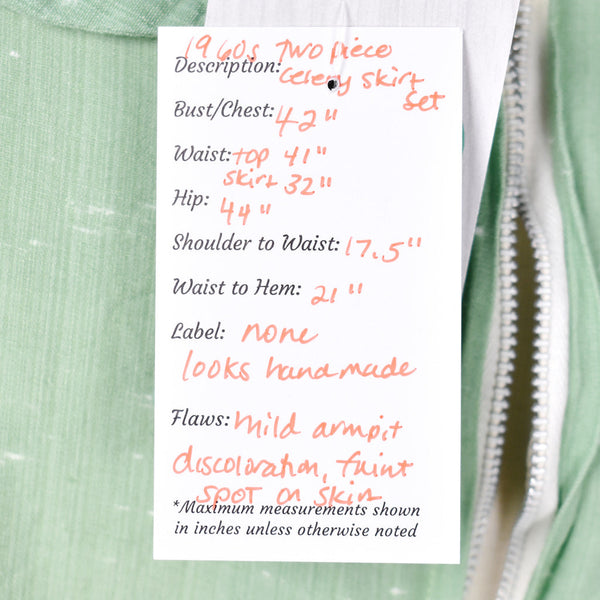 1960s Two piece
Description: Celery skirt
Set
Bust/Chest: 42"
Waist: top 41"
skirt 32"
Hip: 44"
Shoulder to Waist: 17.5"
Waist to Hem: 21"
Label: none
looks handmade
Flaws: Mild armpit
discoloration, faint
spot on skirt
*Maximum measurements shown
in inches unless otherwise noted